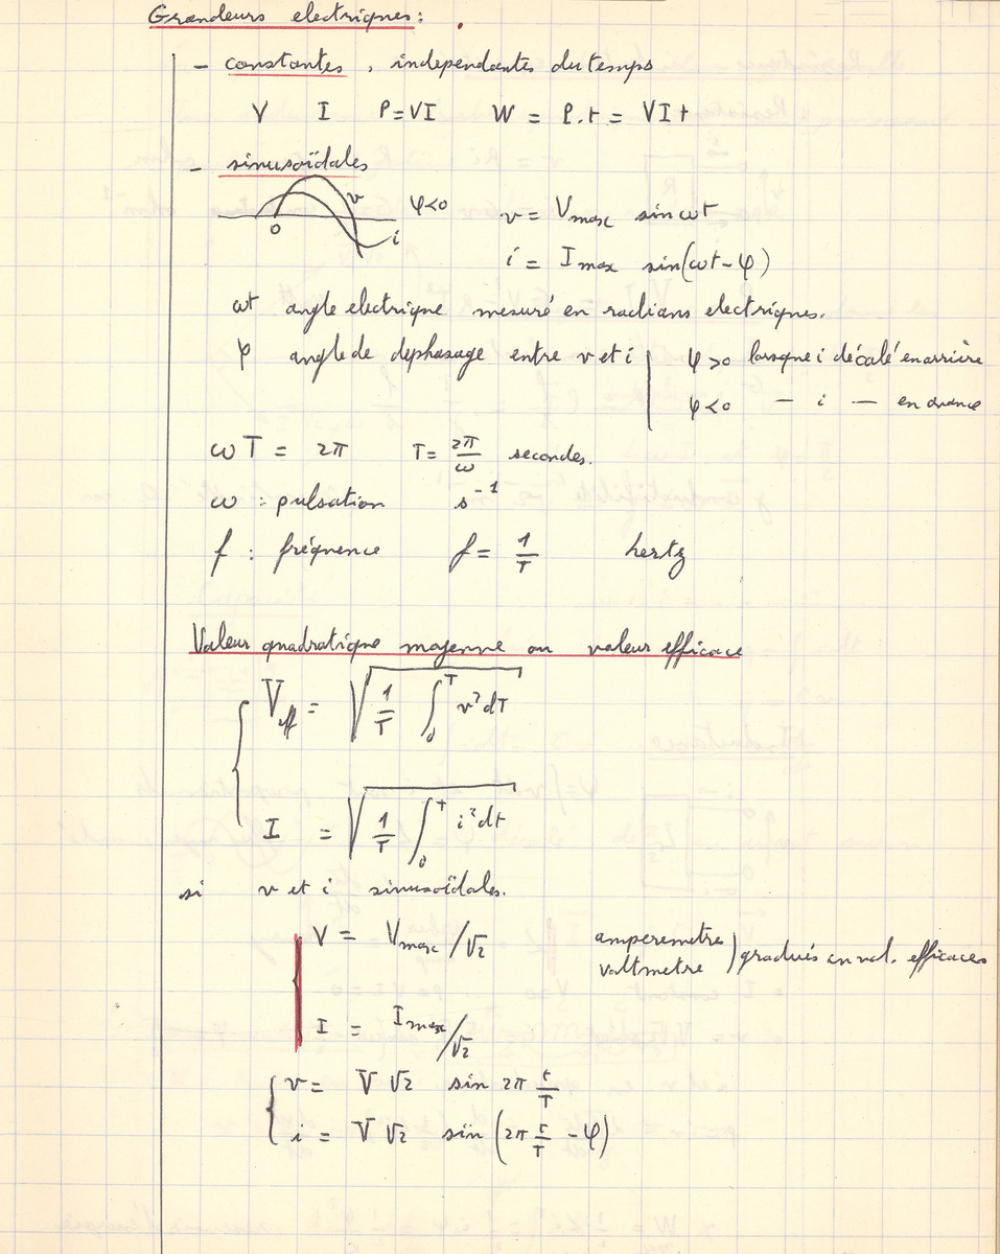 Grandeurs electriques :
- constantes, independantes du temps
V I P=VI W = P.t = VIt
- sinusoïdales
v φ<0 v = Vmax sin ωt
0 i
i = Imax sin(ωt-φ)
ωt angle electrique mesuré en radians electriques.
φ angle de dephasage entre v et i | φ>0 lorsque i décalé en arrière
φ<0 — i — en avance
ωT = 2π T = 2π/ω secondes.
ω : pulsation s⁻¹
f : fréquence f = 1/T hertz
Valeur quadratique moyenne ou valeur efficace
Veff = √(1/T ∫₀ᵀ v² dT)
I = √(1/T ∫₀ᵗ i² dt)
si v et i sinusoïdales.
V = Vmax/√2 amperemetre
voltmetre ) gradués en val. efficaces
I = Imax/√2
v = V √2 sin 2π t/T
i = V √2 sin (2π t/T - φ)